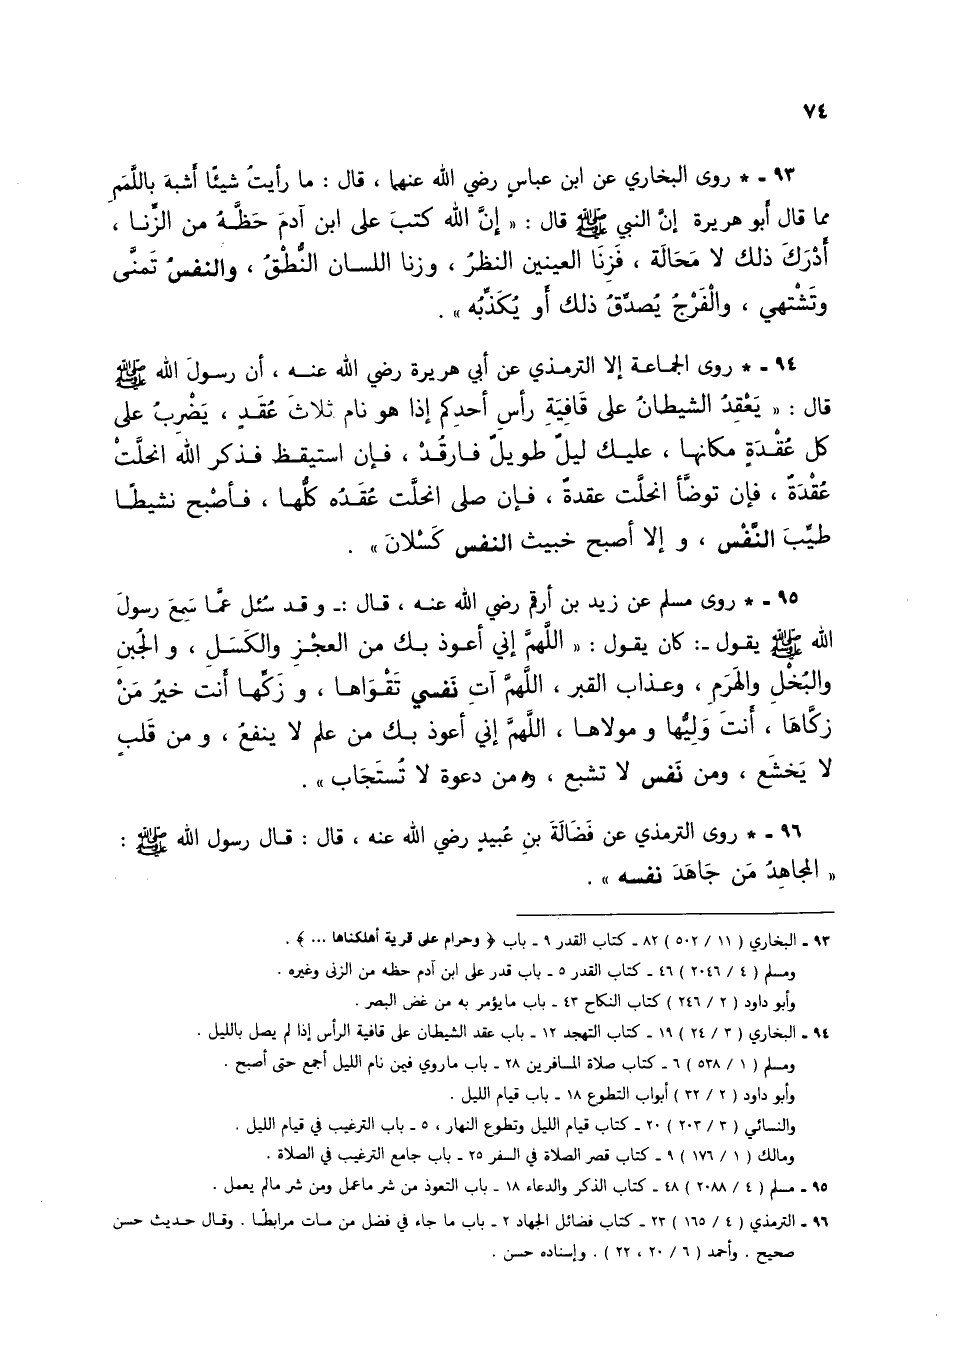 ٧٤
٩٣ - * روى البخاري عن ابن عباسٍ رضي الله عنهما ، قال : ما رأيتُ شيئًا أشبهَ باللَّمَمِ
مما قال أبو هريرة إنَّ النبي ﷺ قال : « إنَّ الله كتبَ على ابن آدمَ حَظَّهُ من الزِّنا ،
أدْرَكَ ذلك لا مَحَالَة ، فَزِنَا العينين النظرُ ، وزنا اللسان النُّطْقُ ، والنفسُ تَمنَّى
وتَشْتهي ، والْفَرْجُ يُصدِّقُ ذلك أو يُكَذِّبُه » .
٩٤ - * روى الجماعة إلا الترمذي عن أبي هريرة رضي الله عنه ، أن رسولَ الله ﷺ
قال : « يَعْقِدُ الشيطانُ على قَافِيَةِ رأسِ أحدِكم إذا هو نام ثلاثَ عُقَدٍ ، يَضْرِبُ على
كل عُقْدَةٍ مكانها ، عليك ليلٌ طويلٌ فارقُدْ ، فإن استيقظ فذكر الله انحلَّتْ
عُقْدَةٌ ، فإن توضَّأ انحلَّت عقدةٌ ، فإن صلى انحلَّت عُقَدُه كلُّها ، فأصْبح نشيطًا
طيِّبَ النَّفْس ، و إلا أصبح خبيث النفس كَسْلانَ » .
٩٥ - * روى مسلم عن زيد بن أرقم رضي الله عنه ، قال :- و قد سُئل عمَّا سَمِعَ رسولَ
الله ﷺ يقول -: كان يقول : « اللَّهمَّ إني أعوذ بك من العجْزِ والكَسَلِ ، و الجُبنِ
والبُخْلِ والهَرَمِ ، وعذاب القبر ، اللَّهمَّ آتِ نَفسي تَقْوَاها ، و زَكِّها أنت خيرُ مَنْ
زكَّاهَا ، أنتَ وَلِيُّها و مولاها ، اللَّهمَّ إني أعوذ بك من علم لا ينفعُ ، و من قَلبٍ
لا يَخشَع ، ومن نَفس لا تشبع ، ومن دعوة لا تُستَجَاب » .
٩٦ - * روى الترمذي عن فَضَالَةَ بنِ عُبيدٍ رضي الله عنه ، قال : قال رسول الله ﷺ :
« المجاهِدُ مَن جَاهَدَ نفسه » .
٩٣ - البخاري ( ١١ / ٥٠٢ ) ٨٢ - كتاب القدر ٩ - باب ﴿ وحرام على قرية أهلكناها ... ﴾ .
ومسلم ( ٤ / ٢٠٤٦ ) ٤٦ - كتاب القدر ٥ - باب قدر على ابن آدم حظه من الزنى وغيره .
وأبو داود ( ٢ / ٢٤٦ ) كتاب النكاح ٤٣ - باب ما يؤمر به من غض البصر .
٩٤ - البخاري ( ٣ / ٢٤ ) ١٩ - كتاب التهجد ١٢ - باب عقد الشيطان على قافية الرأس إذا لم يصل بالليل .
ومسلم ( ١ / ٥٣٨ ) ٦ - كتاب صلاة المسافرين ٢٨ - باب ما روي فيمن نام الليل أجمع حتى أصبح .
وأبو داود ( ٢ / ٣٢ ) أبواب التطوع ١٨ - باب قيام الليل .
والنسائي ( ٣ / ٢٠٣ ) ٢٠ - كتاب قيام الليل وتطوع النهار ، ٥ - باب الترغيب في قيام الليل .
ومالك ( ١ / ١٧٦ ) ٩ - كتاب قصر الصلاة في السفر ٢٥ - باب جامع الترغيب في الصلاة .
٩٥ - مسلم ( ٤ / ٢٠٨٨ ) ٤٨ - كتاب الذكر والدعاء ١٨ - باب التعوذ من شر ما عمل ومن شر مالم يعمل .
٩٦ - الترمذي ( ٤ / ١٦٥ ) ٢٣ - كتاب فضائل الجهاد ٢ - باب ما جاء في فضل من مات مرابطًا . وقال حديث حسن
صحيح . وأحمد ( ٦ / ٢٠ ، ٢٢ ) . وإسناده حسن .